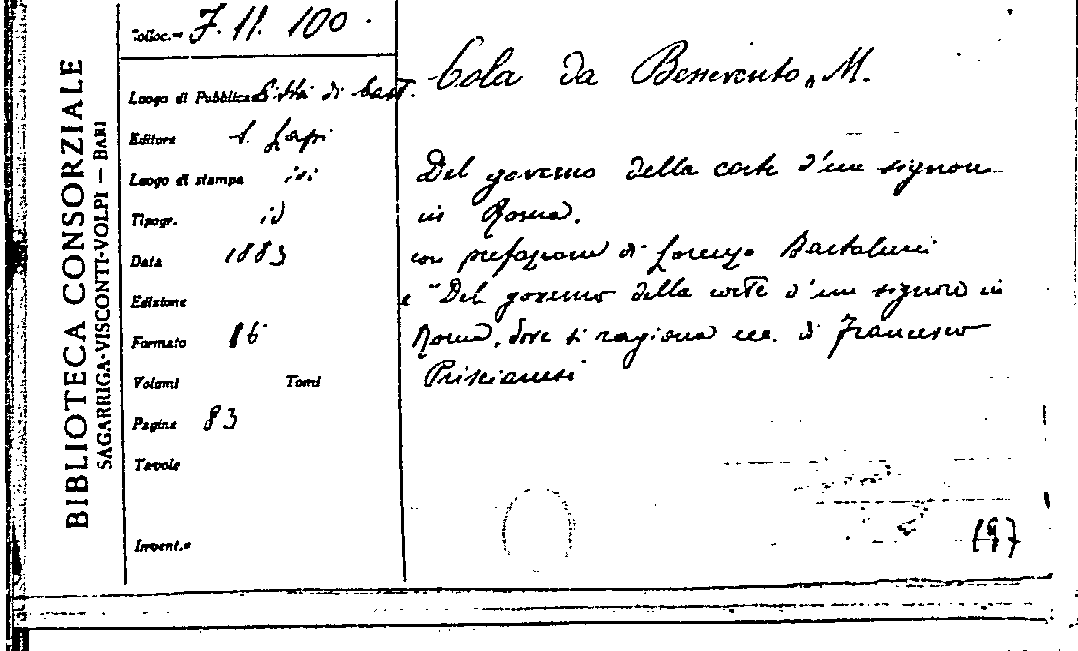 BIBLIOTECA CONSORZIALE
SAGARRIGA-VISCONTI-VOLPI — BARI
Colloc.ne 7. 11. 100.
Luogo di Pubblica Città di Cast.
Editore S. Lapi
Luogo di stampa ivi
Tipogr. id
Data 1883
Edizione
Formato 16
Volumi Tomi
Pagine 83
Tavole
Invent.o
Cola da Benevento, M.
Del governo della corte d'un signore
in Roma.
con prefazione di Lorenzo Bartolucci
e "Del governo della corte d'un signore in
Roma, dove si ragiona ecc. di Francesco
Priscianesi